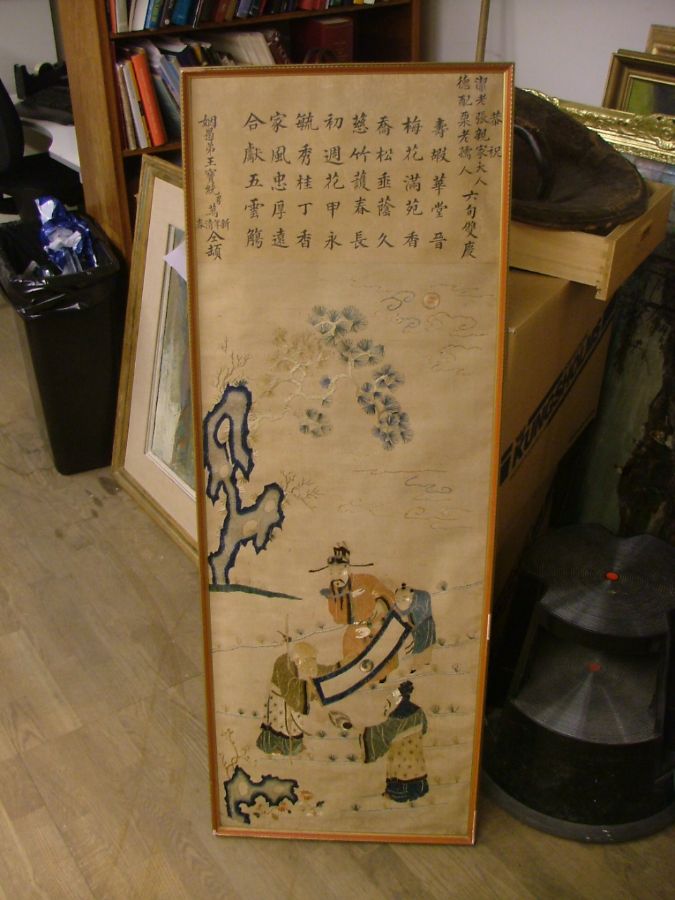 恭祝
潔老張親家大人
德配栗老孺人
六旬雙慶
壽嘏華堂晉
梅花滿苑香
喬松垂蔭久
慈竹護春長
初週花甲永
毓秀桂丁香
家風忠厚遠
合獻五雲觴
姻愚弟王寶統
仝頓